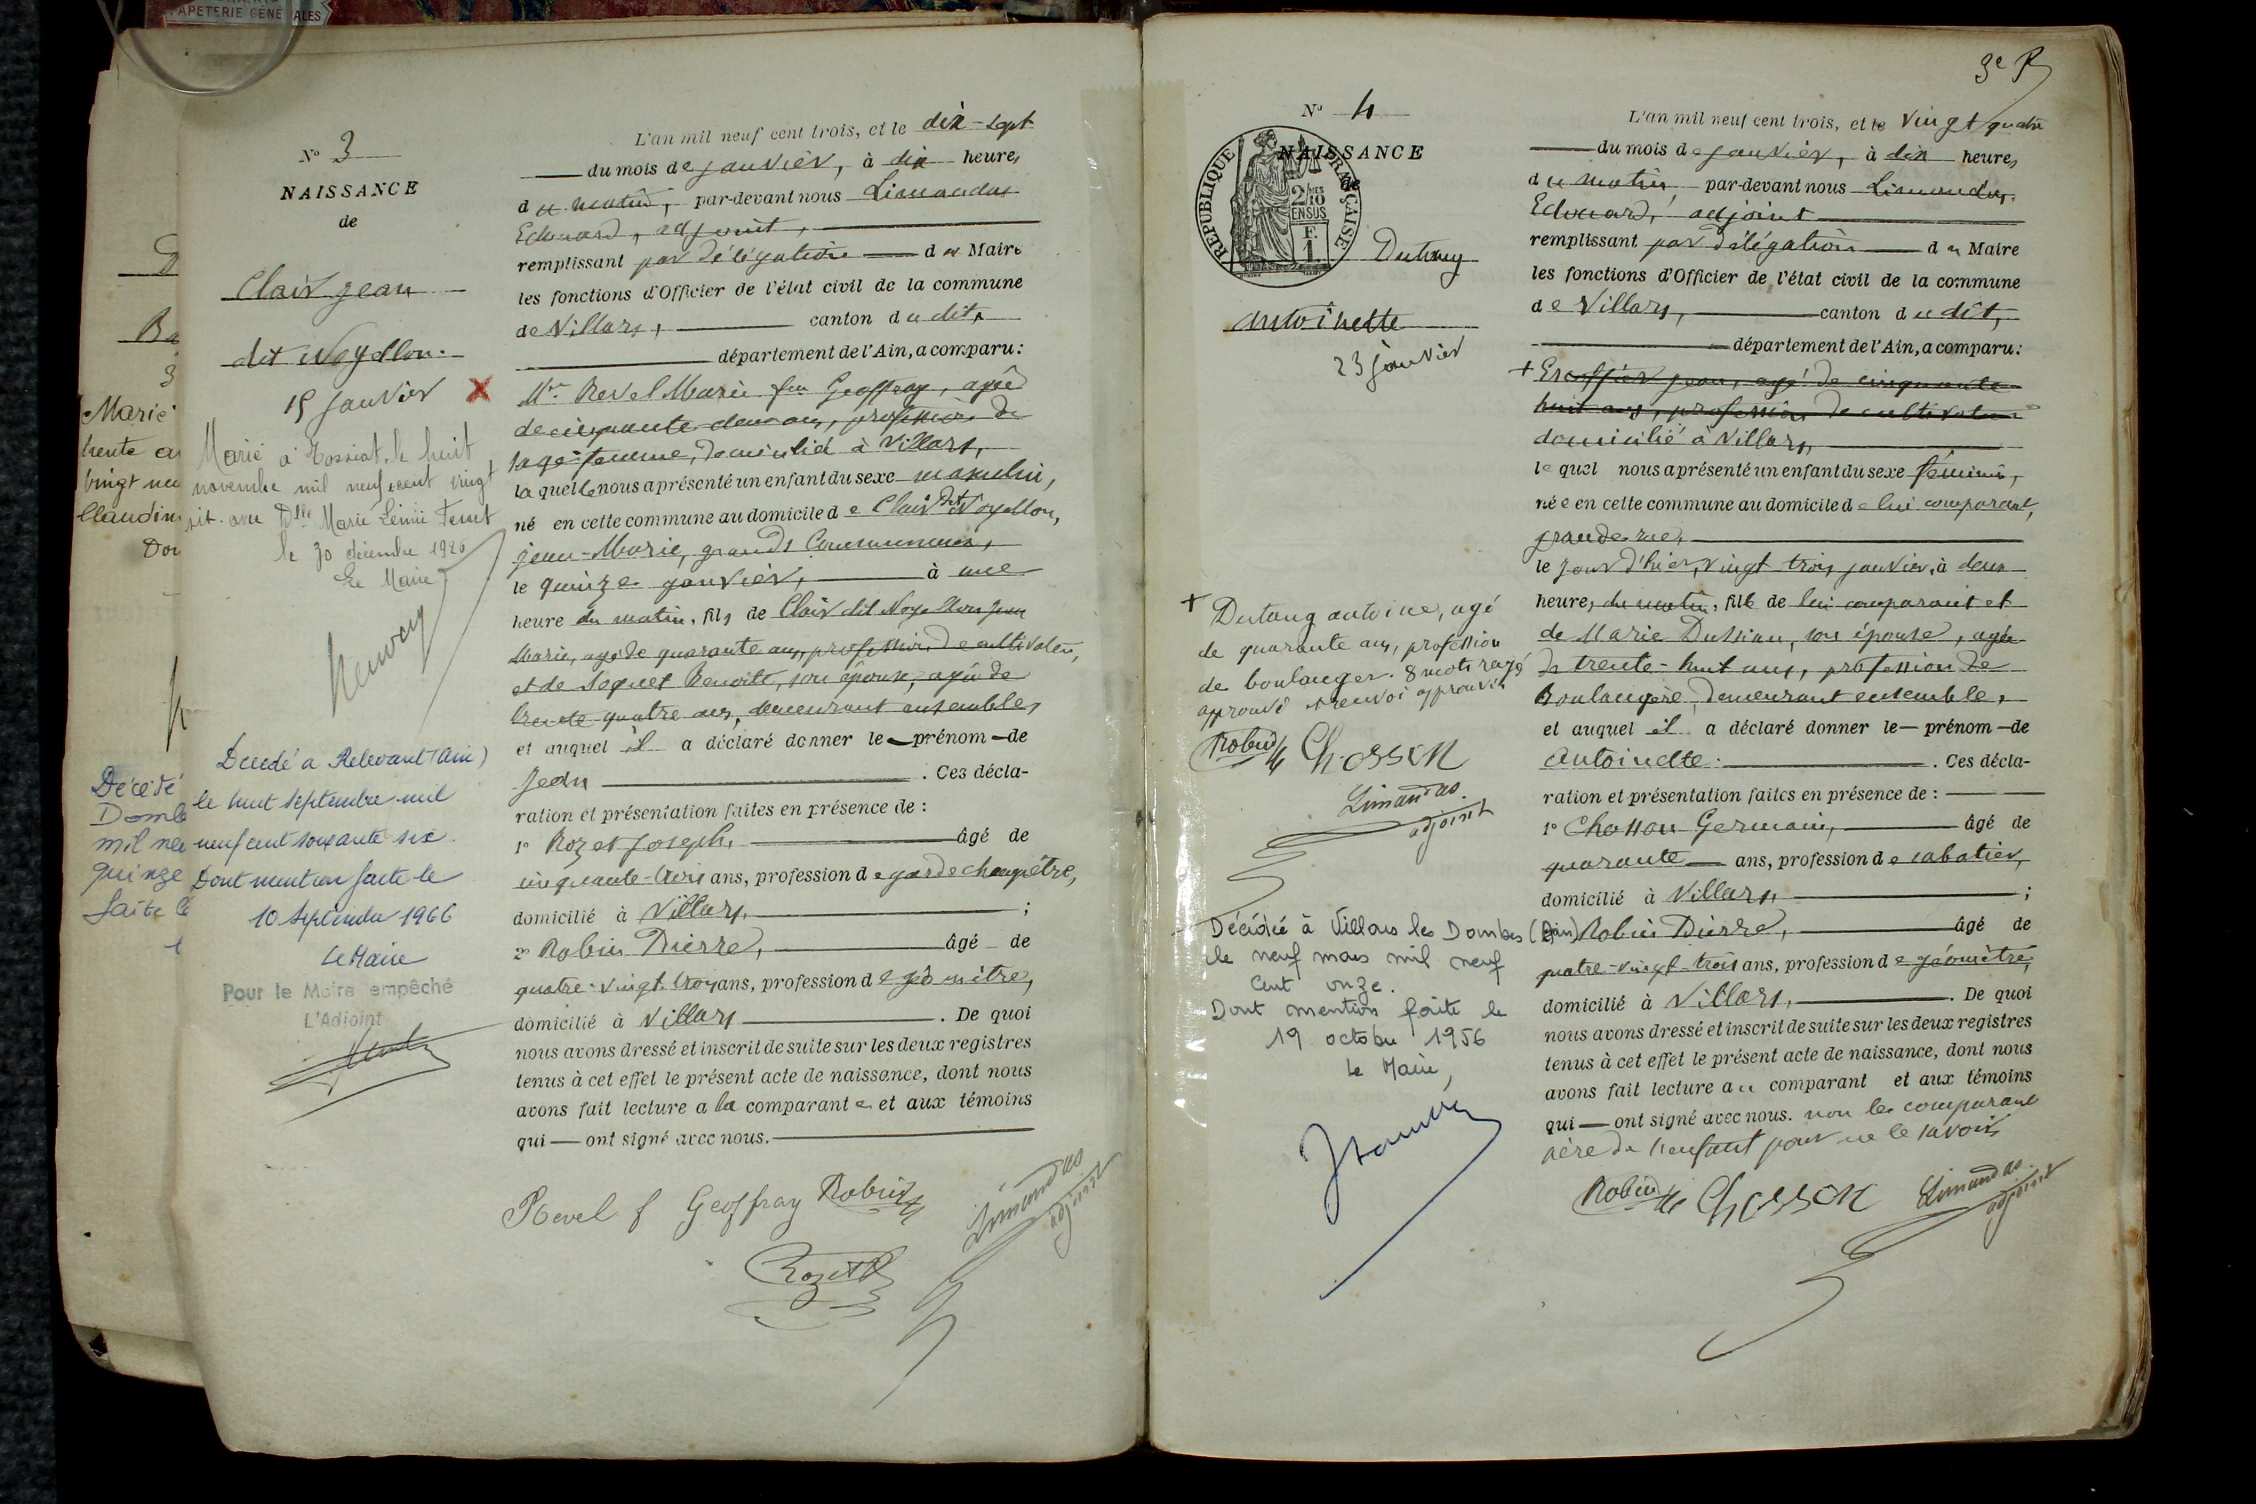 APETERIE GENERALES
N° 3
NAISSANCE
de
Clair jean
dit Noyellon.
15 janvier
Marié à Tossiat, le huit
novembre mil neuf cent vingt
six avec Dlle Marie
le 30 décembre 1926
Le Maire
Décédé a Relevant (Ain)
le huit septembre mil
neuf cent soixante six.
Dont mention faite le
10 Septembre 1966
Le Maire
Pour le Maire empêché
L'Adjoint
L'an mil neuf cent trois, et le dix-sept
du mois de janvier, à dix heures
du matin, par-devant nous Limandas
Edouard, adjoint,
remplissant par délégation du Maire
les fonctions d'Officier de l'état civil de la commune
de Villars, canton du dit,
département de l'Ain, a comparu:
Me Revel Marie fe Geoffray, agée
de cinquante deux ans, profession de
sage-femme, domicilié à Villars,
laquelle nous a présenté un enfant du sexe masculin,
né en cette commune au domicile de Clair dit Noyellon,
jean-Marie, grands Communaux,
le quinze janvier, à une
heure du matin, fils de Clair dit Noyellon jean
Marie, agé de quarante ans, profession de cultivateur,
et de Soquet Benoite, son épouse, agée de
trente-quatre ans, demeurant ensembles
et auquel il a déclaré donner le prénom de
Jean. Ces décla-
ration et présentation faites en présence de :
1° Rozet Joseph, âgé de
cinquante-trois ans, profession de garde champêtre,
domicilié à Villars, ;
2° Robin Pierre, âgé de
quatre-vingt trois ans, profession de géomètre,
domicilié à Villars. De quoi
nous avons dressé et inscrit de suite sur les deux registres
tenus à cet effet le présent acte de naissance, dont nous
avons fait lecture a la comparante et aux témoins
qui ont signé avec nous.
Revel f Geoffray Robin
Limandas
adjoint
Rozet
Marié
trente
vingt neu
Claudin
Décédé
Domb
mil ne
quinze
faite le
3e
N° 4
NAISSANCE
de
REPUBLIQUE FRANÇAISE
2/10
EN SUS
F.
1
Dutang
Antoinette
23 janvier
+ Dutang antoine, agé
de quarante ans, profession
de boulanger. 8 mots rayés
approuvé renvoi approuvé
Robin Chosson
Limandas
adjoint
Décédée à Villars les Dombes (Ain)
le neuf mars mil neuf
cent onze.
Dont mention faite le
19 octobre 1956
Le Maire,
L'an mil neuf cent trois, et le vingt quatre
du mois de janvier, à dix heures
du matin par-devant nous Limandas
Edouard, adjoint
remplissant par délégation du Maire
les fonctions d'Officier de l'état civil de la commune
de Villars, canton du dit,
département de l'Ain, a comparu:
+ Escoffier jean, agé de cinquante
huit ans, profession de cultivateur
domicilié à Villars,
lequel nous a présenté un enfant du sexe féminin,
née en cette commune au domicile de lui comparant,
grande rue,
le jour d'hier, vingt trois janvier, à deux
heures du matin, fille de lui comparant et
de Marie Dussian, son épouse, agée
de trente-huit ans, profession de
Boulangère, demeurant ensemble,
et auquel il a déclaré donner le prénom de
Antoinette. Ces décla-
ration et présentation faites en présence de :
1° Chosson Germain, âgé de
quarante ans, profession de sabotier,
domicilié à Villars, ;
Robin Pierre, âgé de
quatre-vingt-trois ans, profession de géomètre,
domicilié à Villars,. De quoi
nous avons dressé et inscrit de suite sur les deux registres
tenus à cet effet le présent acte de naissance, dont nous
avons fait lecture au comparant et aux témoins
qui ont signé avec nous. non le comparant
père de l'enfant pour ne le savoir
Robin Chosson Limandas
adjoint